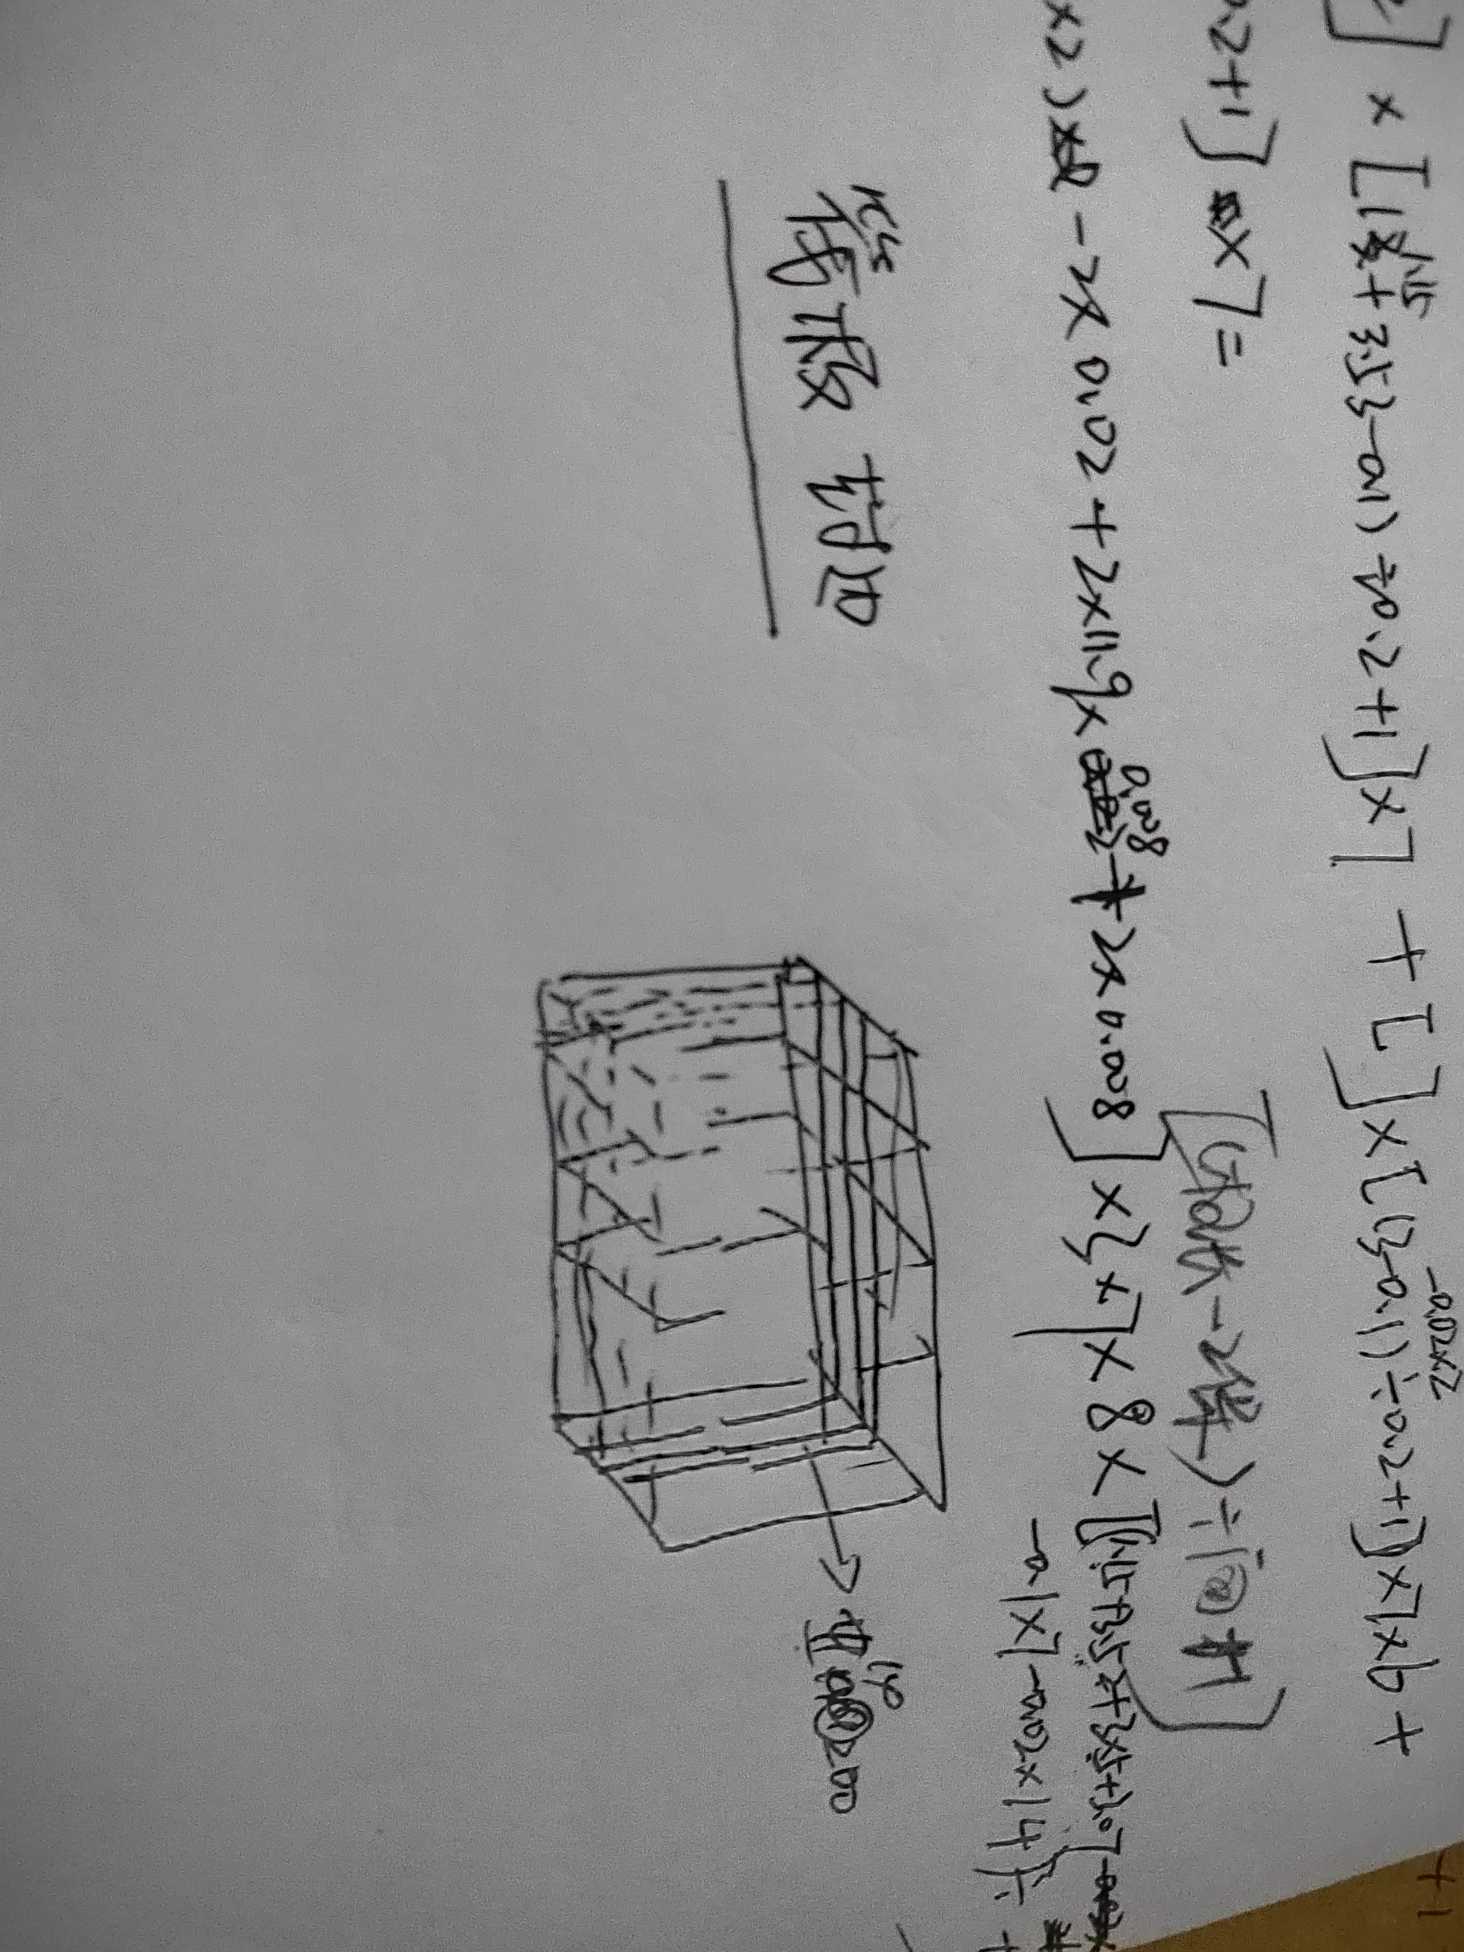 ] × [(1.15 + 3.53-0.1) ÷0.2+1]×7 + [ ]×[(3-0.1-0.02×2)÷0.2+1]×7×6 +
0.2+1] ×7=
[(板长-2保)÷间+1]
×2)×2 - 2×0.02+2×11.9×0.008+2×0.008]×3×7×8×[(1.15+3.52+3×5+3.07
-0.1×7-0.02×14)÷
筏板封边
14@200